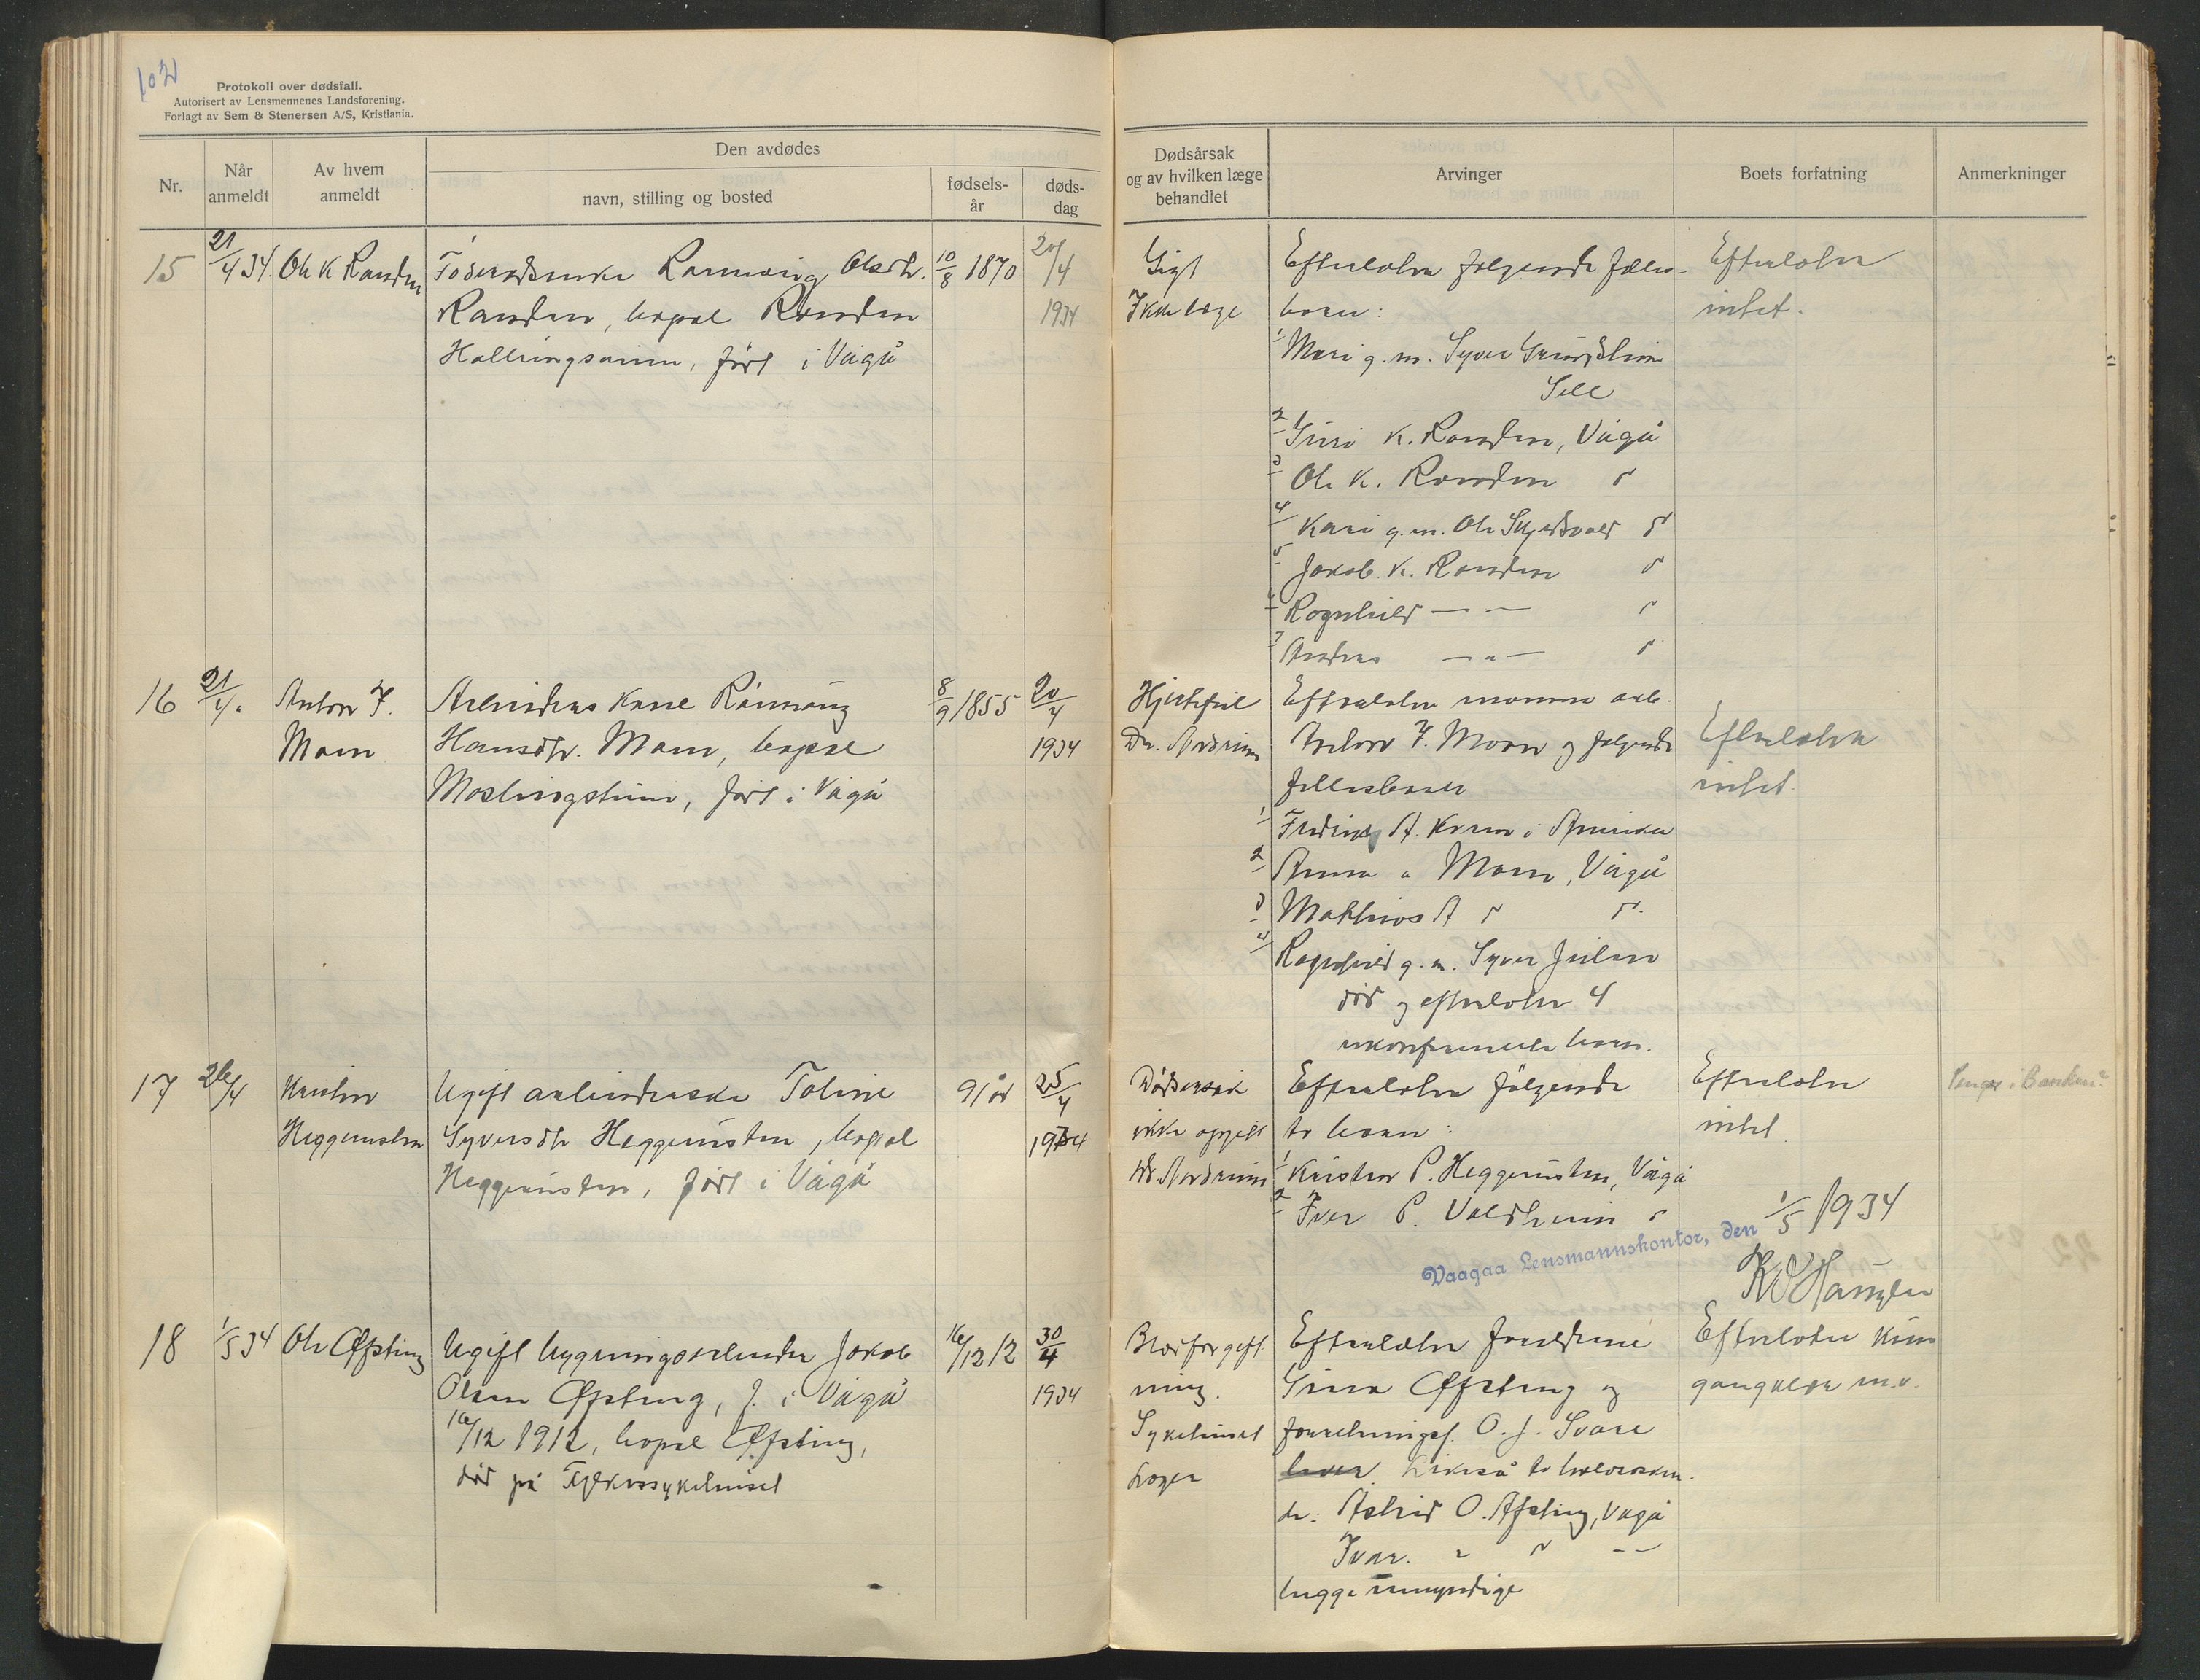 102
Protokoll over dødsfall.
Autorisert av Lensmennenes Landsforening.
Forlagt av Sem & Stenersen A/S, Kristiania.
Nr.
Når anmeldt
Av hvem anmeldt
Den avdødes
navn, stilling og bosted
fødsels-år
døds-dag
Dødsårsak og av hvilken læge behandlet
Arvinger
Boets forfatning
Anmerkninger
15 21/4 34. Ole K Randen
Føderådsenke Rannveig Olsdtr. 10/8 1870 20/4
Randen, bopæl Randen 1934
født i Vågå
Gigt
Ikke læge
Efterlater følgende felles-
barn:
1 Mari g. m. Syver
Sell
2 Guri K. Randen, Vågå
3 Ole K. Randen "
4 Kari g. m. Ole "
5 Jakob K. Randen "
6 Ragnhild — — "
7 Andreas — " — "
Efterlater
intet.
16 21/4. Anton F.
Moen
Arbeiders kone Rønnaug 8/9 1855 20/4
Hansdtr. Moen, bopæl 1934
født i Vågå
Hjertefeil
Dr. Nordrum
Efterlater mannen arb.
Anton F. Moen og følgende
fellesbarn
1 A. i Amerika
2 Anna " Moen, Vågå
3 Mathias A " "
4 Ragnhild g. m. Syver
død og efterlater 4
ukonfirmerte barn.
Efterlater
intet.
17 26/4 Kristen
Heggeristen
Ugift arbeiderske Toline 91 år 25/4
Syversdtr Heggeristen, bopæl 1934
Heggeristen, født i Vågå
Dødsårsak
ikke opgitt
Dr. Nordrum
Efterlater følgende
to barn:
1 Kristen P. Heggeristen, Vågå
2 Iver P. Valdheim "
Efterlater
intet.
Penger i Banken?
Vaagaa Lensmannskontor, den 1/5 1934
18 1/5 34 Ole Øfsting
Ugift bygningsarbeider Jakob 16/12 12 30/4
Olsen Øfsting, f. i Vågå 1934
16/12 1912, bopæl Øfsting,
død på Fylkessykehuset
Blodforgift-
ning.
Sykehuset
Læger
Efterlater foreldrene
Øfsting og
O. J. Svare
lever. Likeså to halvsøsken.
Astrid O. Øfsting, Vågå
Ivar. " " — —
begge umyndige
Efterlater kun
gangklær m.v.